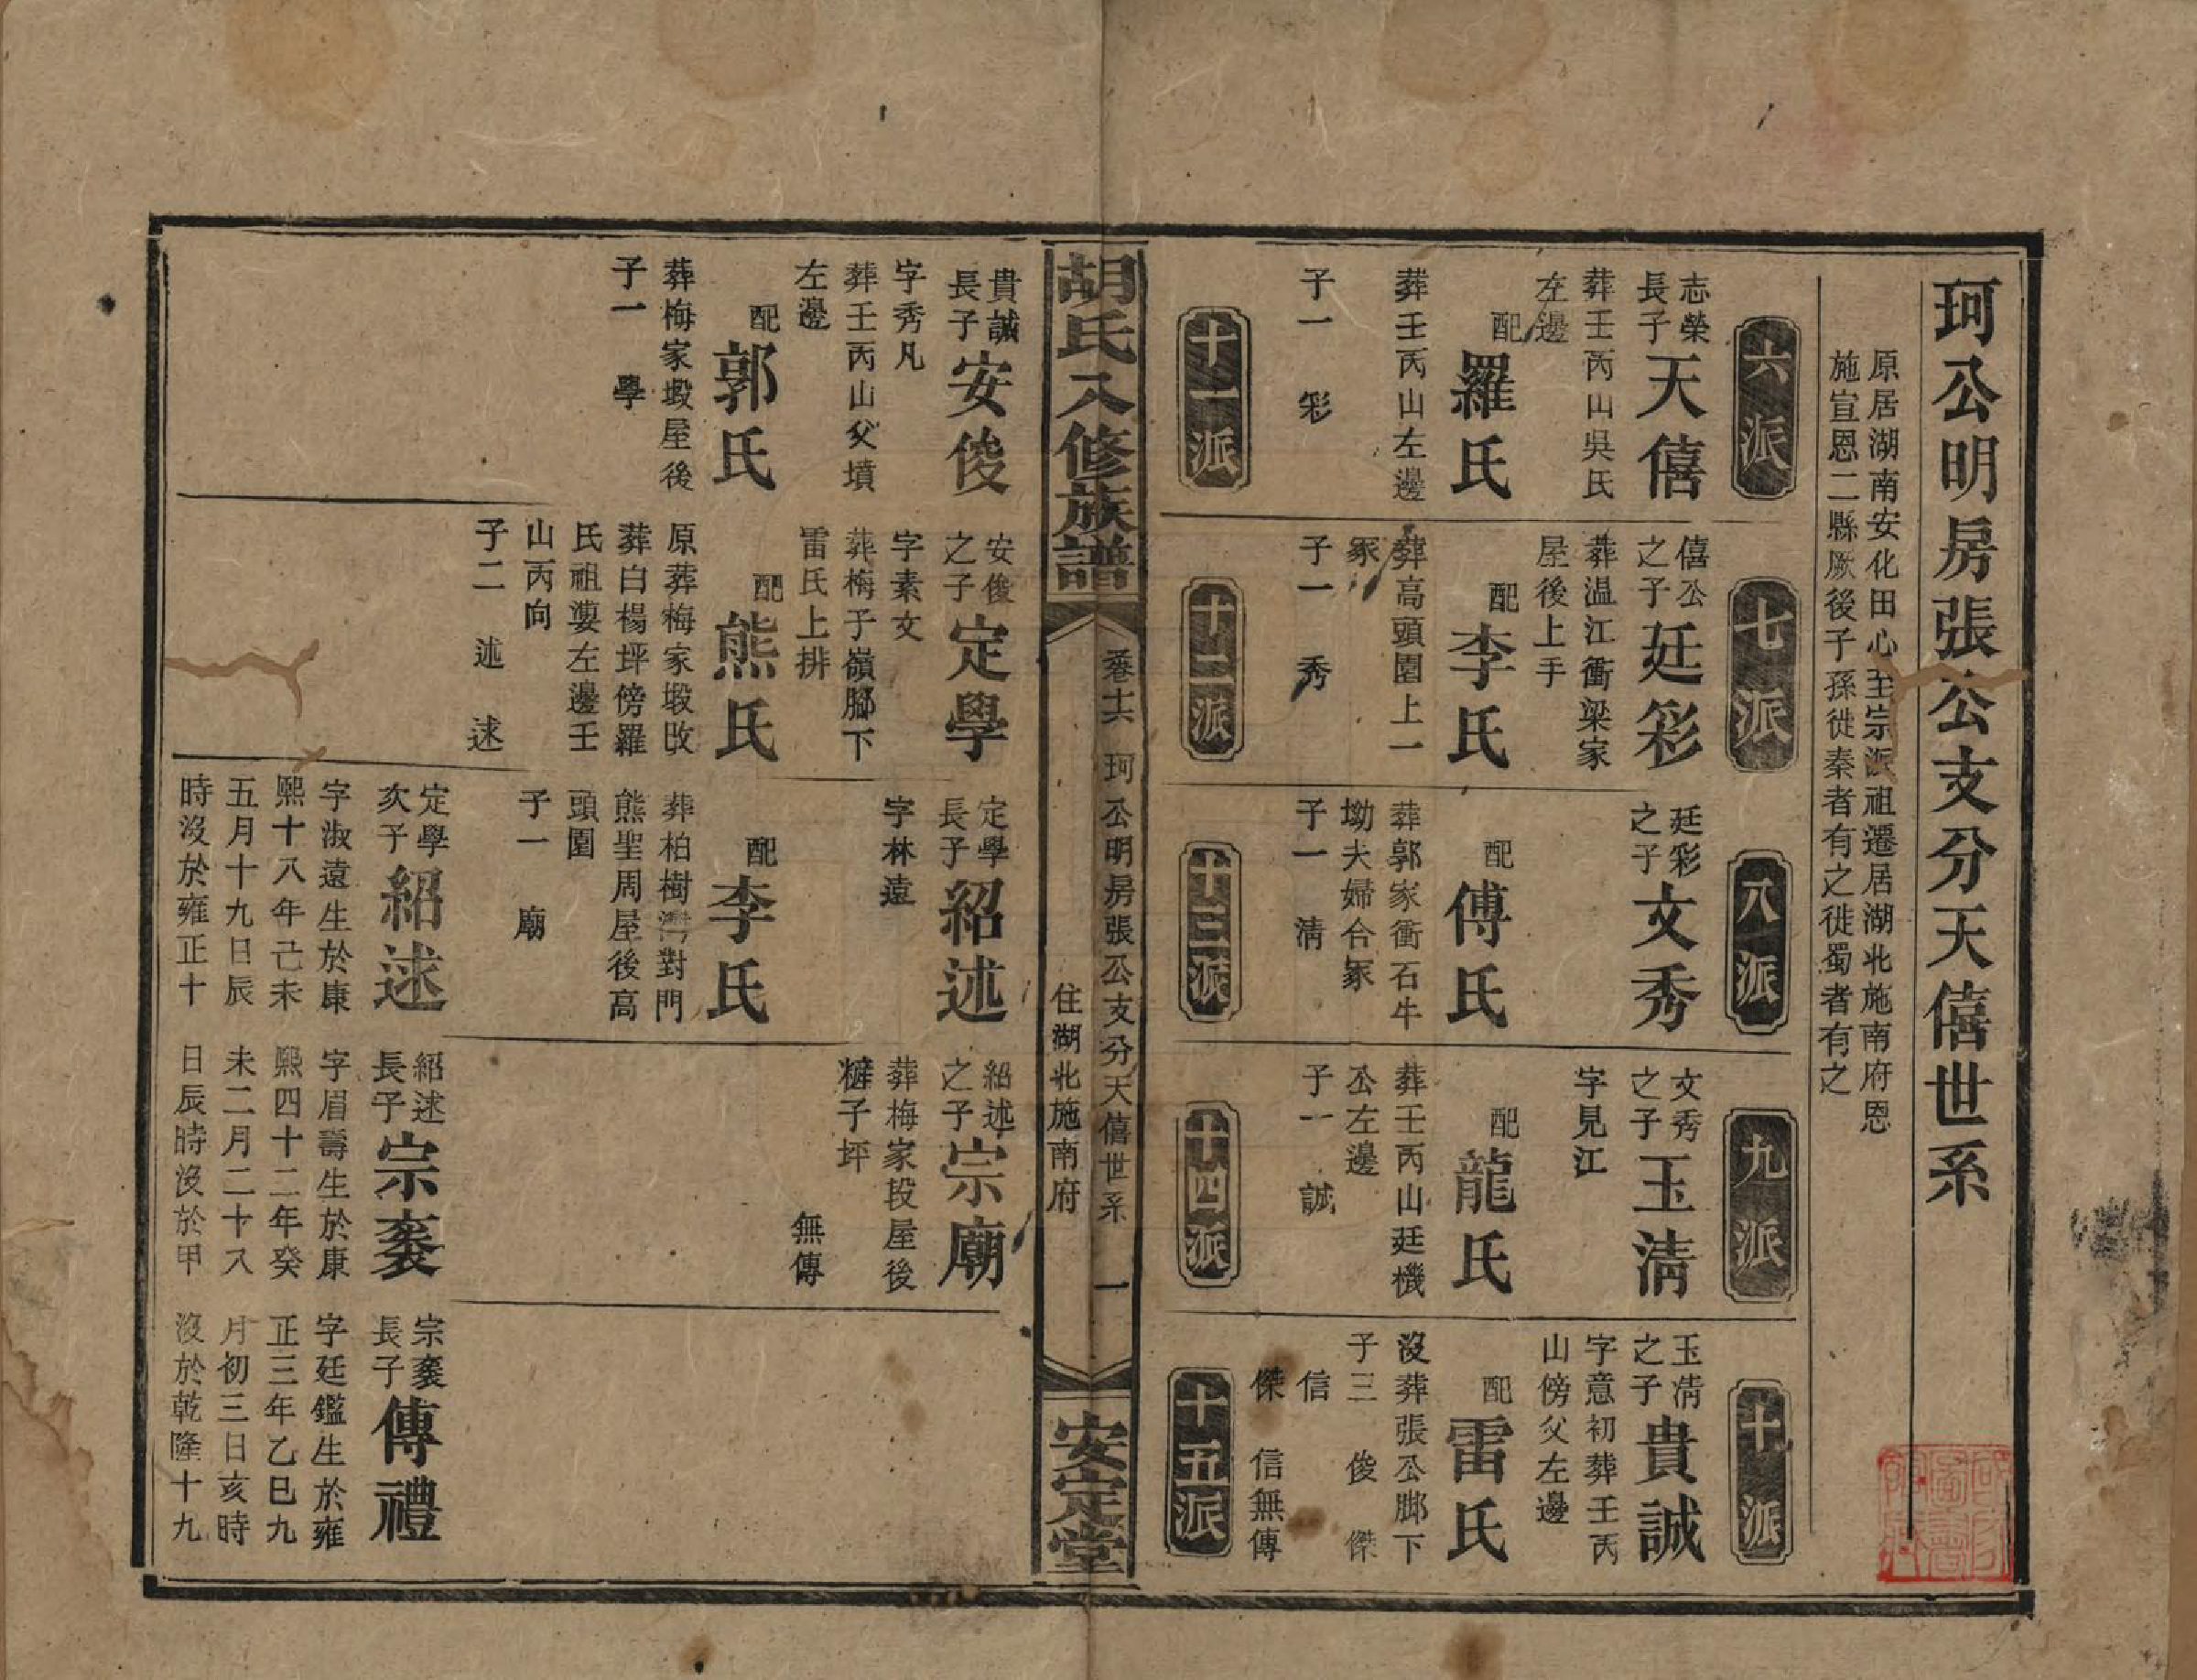 珂公明房張公支分天僖世系
原居湖南安化田心至宗派祖遷居湖北施南府恩
施宣恩二縣厥後子孫徙秦者有之徙蜀者有之
六派
志榮
長子
天僖
葬壬丙山吳氏
左邊
配
羅氏
葬壬丙山左邊
子一 彩
七派
僖公
之子
廷彩
葬温江衝梁家
屋後上手
配
李氏
葬高頭園上一
冢
子一 秀
八派
廷彩
之子
文秀
配
傅氏
葬郭家衝石牛
坳夫婦合冢
子一 清
九派
文秀
之子
玉清
字見江
配
龍氏
葬壬丙山廷機
公左邊
子一 誠
十派
玉清
之子
貴誠
字意初葬壬丙
山傍父左邊
配
雷氏
沒葬張公脚下
子三 俊 傑
信
傑 信無傳
十一派
十二派
十三派
十四派
十五派
胡氏入修族譜
卷十六 珂公明房張公支分天僖世系 一
住湖北施南府
安定堂
貴誠
長子
安俊
字秀凡
葬壬丙山父墳
左邊
配
郭氏
葬梅家塅屋後
子一 學
安俊
之子
定學
字素文
葬梅子嶺腳下
雷氏上排
配
熊氏
原葬梅家塅改
葬白楊坪傍羅
氏祖婆左邊壬
山丙向
子二 述 逑
定學
長子
紹述
字林遠
配
李氏
葬柏樹灣對門
熊聖周屋後高
頭園
子一 廟
紹述
之子
宗廟
葬梅家段屋後
子坪
無傳
定學
次子
紹逑
字淑遠生於康
熙十八年己未
五月十九日辰
時沒於雍正十
紹逑
長子
宗袠
字眉壽生於康
熙四十二年癸
未二月二十八
日辰時沒於甲
宗袠
長子
傳禮
字廷鑑生於雍
正三年乙巳九
月初三日亥時
沒於乾隆十九